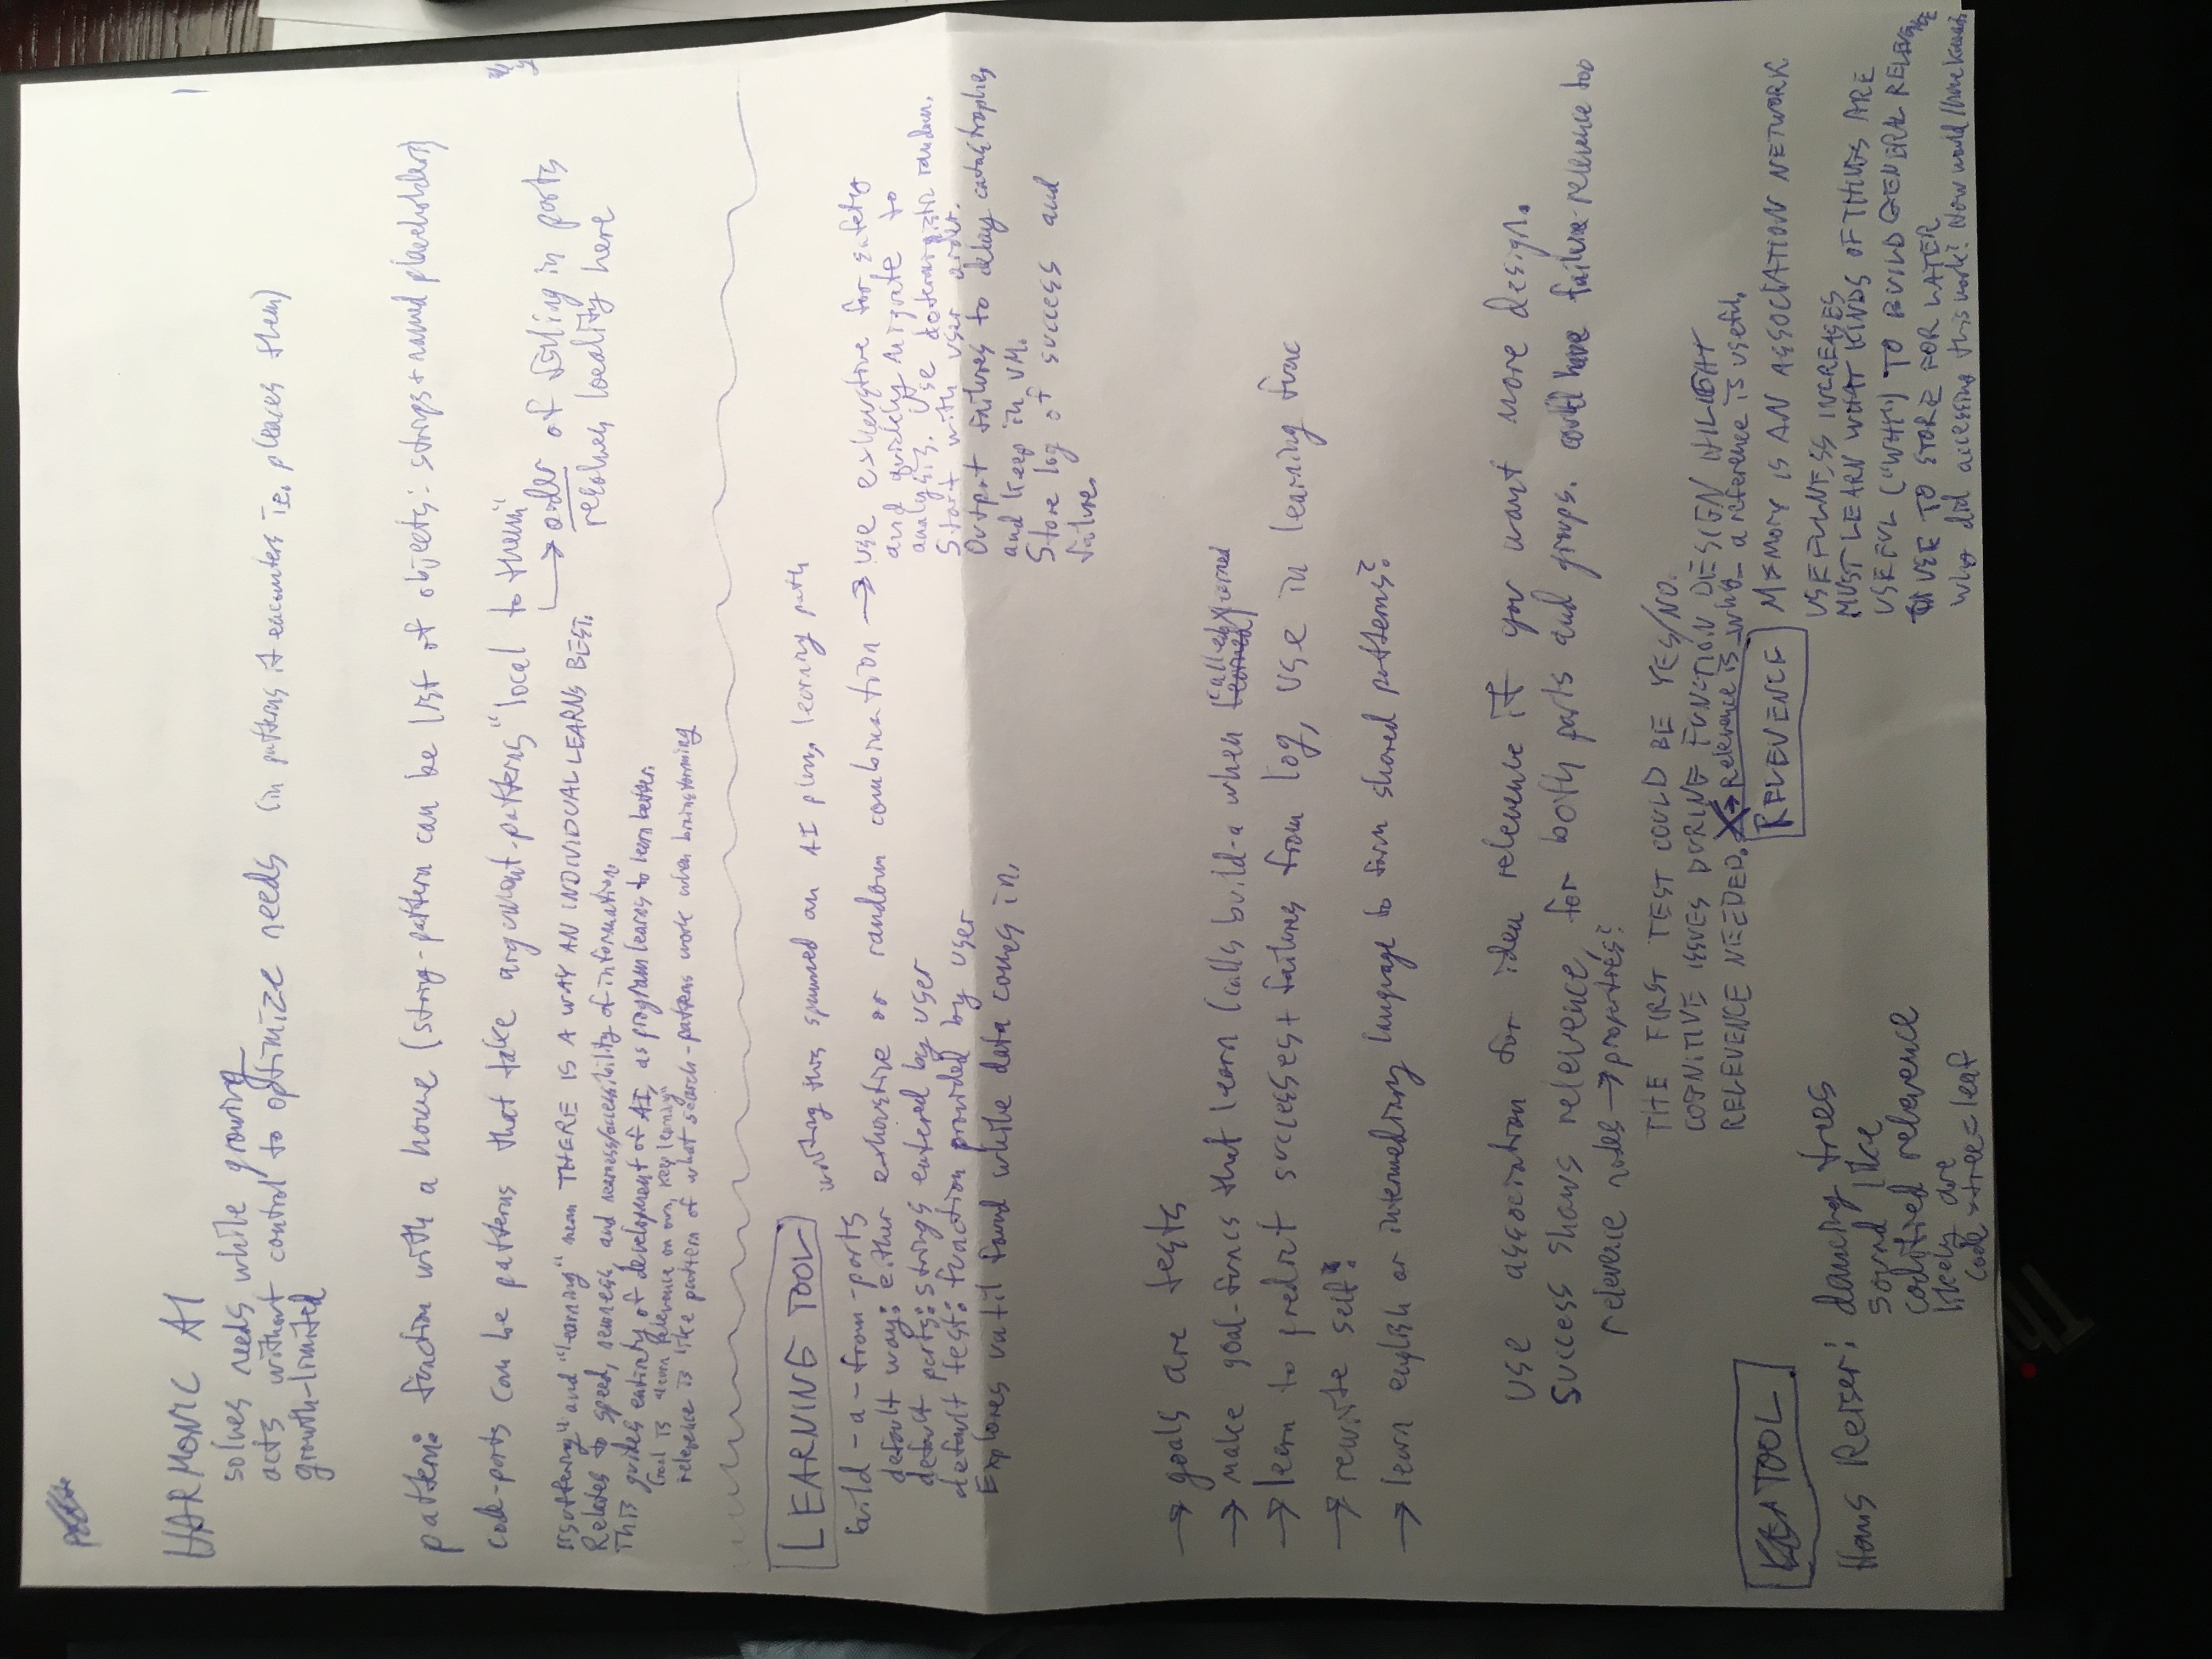 HARMONIC AI
solves needs while growing
acts without control to optimize needs (in patterns it encounters i.e. pleases them)
growth-limited
pattern: function with a home (string-pattern can be list of objects: strings + named placeholders)
code-parts can be patterns that take argument-patterns "local to them"
→ order of filling in parts
resolves locality here
"suffering" and "learning" mean THERE IS A WAY AN INDIVIDUAL LEARNS BEST.
Relates to speed, newness, and nearness/accessibility of information.
This guides entirety of development of AI, as program learns to learn better.
Goal is "learn relevence on own, keep learning"
relevence is like pattern of what search-patterns work when brainstorming
LEARNING TOOL
writing this spawned an AI plan, learning path
build-a-from-parts
default way: either exhaustive or random combination →
default parts: strings entered by user
default test: function provided by user
Explores until found while data comes in.
use exhaustive for safety
and quickly migrate to
analysis. Use deterministic random.
Start with user order.
Output failures to delay catastrophes
and keep in VM.
Store log of success and
failure.
→ goals are tests
→ make goal-funcs that learn (calls build-a when called/learned
→ learn to predict successes + failures from log, use in learning func
→ rewrite self:
→ learn english or intermediary language to form shared patterns?
use association for idea relevence if you want more design.
success shows relevence, for both parts and groups. could have failure-relevence too
relevence notes → properties?
THE FIRST TEST COULD BE YES/NO.
COGNITIVE ISSUES DURING FUNCTION DESIGN HILIGHT
RELEVENCE NEEDED. → Relevence is why a reference is useful.
TOOL
Hans Reiser: dancing trees
sound like
codified relevence
likely are
code = tree = leaf
RELEVENCE
MEMORY IS AN ASSOCIATION NETWORK
USEFULNESS INCREASES
MUST LEARN WHAT KINDS OF THINGS ARE
USEFUL ("WHY") TO BUILD GENERAL RELEVENCE
USE TO STORE FOR LATER
Why did accessing this work? How would I have known